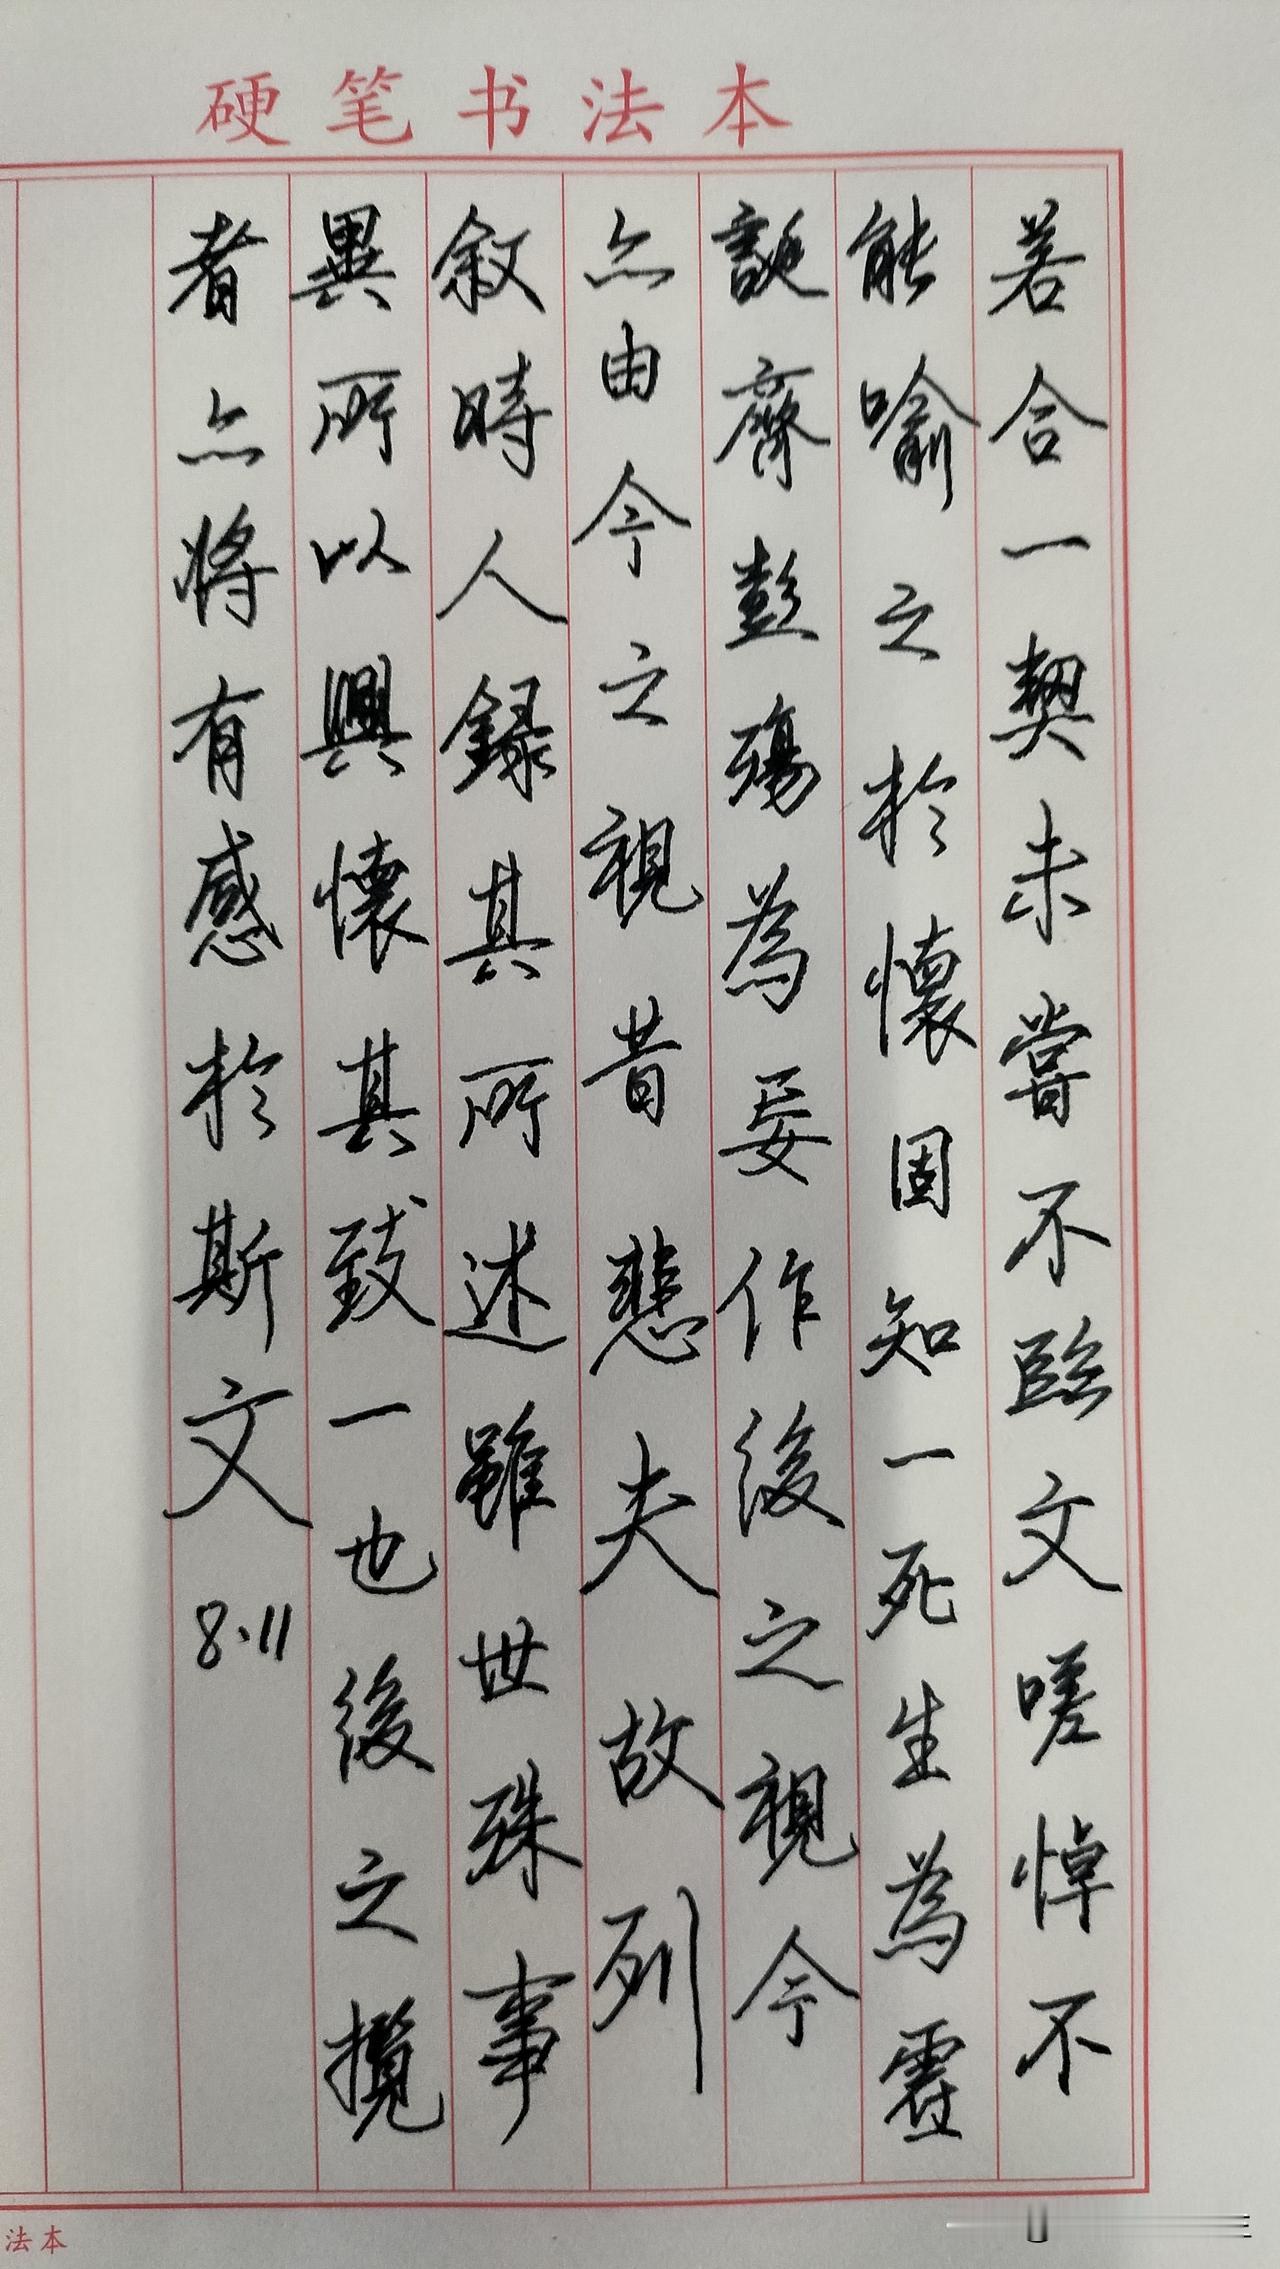 硬笔书法本
若合一契未嘗不臨文嗟悼不
能喻之於懷固知一死生為虛
誕齊彭殤為妄作後之視今
亦由今之視昔悲夫故列
敘時人錄其所述雖世殊事
異所以興懷其致一也後之攬
者亦將有感於斯文
8.11
法本